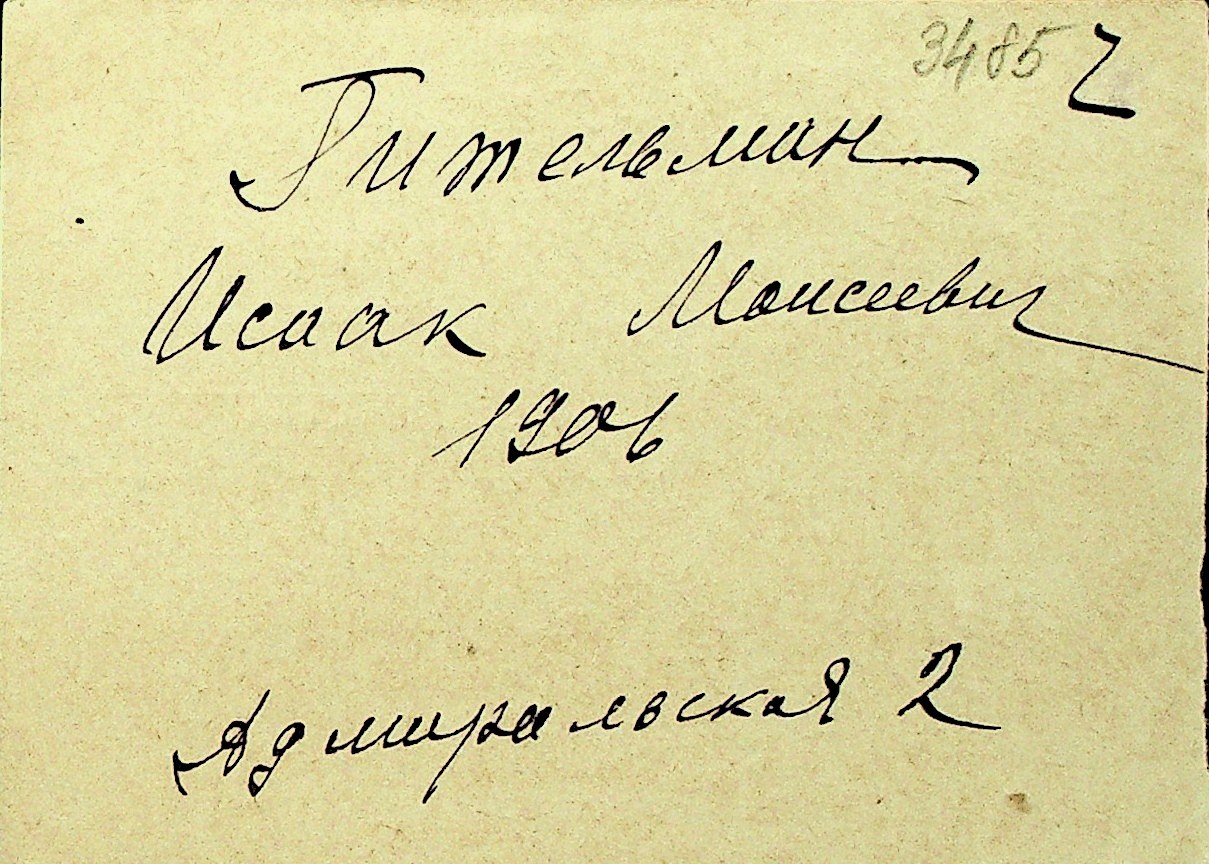 3485 2
Гительман
Исаак Моисеевич
1906
Адмиральская 2